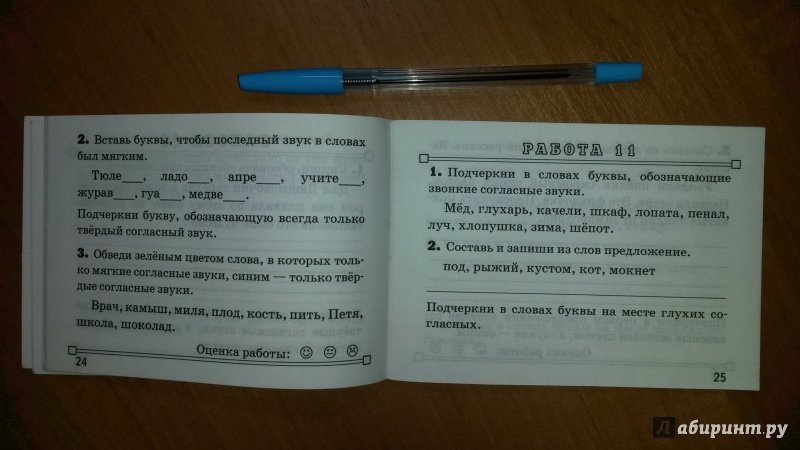 2. Вставь буквы, чтобы последный звук в словах
был мягким.
Тюле___, ладо___, апре___, учите___,
журав___, гуа___, медве___.
Подчеркни букву, обозначающую всегда только
твёрдый согласный звук.
3. Обведи зелёным цветом слова, в которых толь-
ко мягкие согласные звуки, синим — только твёр-
дые согласные звуки.
Врач, камыш, миля, плод, кость, пить, Петя,
школа, шоколад.
Оценка работы:
24
РАБОТА 11
1. Подчеркни в словах буквы, обозначающие
звонкие согласные звуки.
Мёд, глухарь, качели, шкаф, лопата, пенал,
луч, хлопушка, зима, шёпот.
2. Составь и запиши из слов предложение.
под, рыжий, кустом, кот, мокнет
Подчеркни в словах буквы на месте глухих со-
гласных.
25
Лабиринт.ру